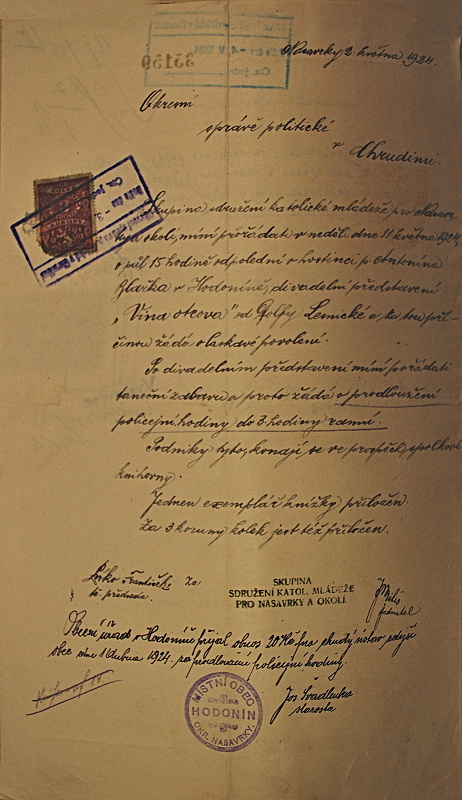 Nasavrky 2. května 1924.
35159
Okresní
správě politické
v
Chrudimi.
Skupina sdružení katolické mládeže pro Nasavrky
a okolí, míní pořádati v neděli dne 11 května 1924,
o půl 15 hodině odpolední v hostinci p. Antonína
Blažka v Hodoníně, divadelní představení
„Vina otcova" od Lenické a, ža tou pří-
činou žádá o laskavé povolení.
Po divadelním představení míní pořádati
taneční zábavu a proto žádá o prodloužení
policejní hodiny do 3. hodiny ranní.
Podniky tyto, konají se ve prospěch spolkové
knihovny.
Jeden exemplář knížky přiložen.
Za 3 koruny kolek jest též přiložen.
František
t. předseda.
SKUPINA
SDRUŽENÍ KATOL. MLÁDEŽE
PRO NASAVRKY A OKOLÍ.
jednatel
Obecní úřad v Hodoníně přijal obnos 20 Kč pro chudý ústav zdejší
obce dne 1924. za prodloužení policejní hodiny.
MÍSTNÍ OBEC
HODONÍN
OKR. NASAVRKY.
Jos. Švadlenka
starosta